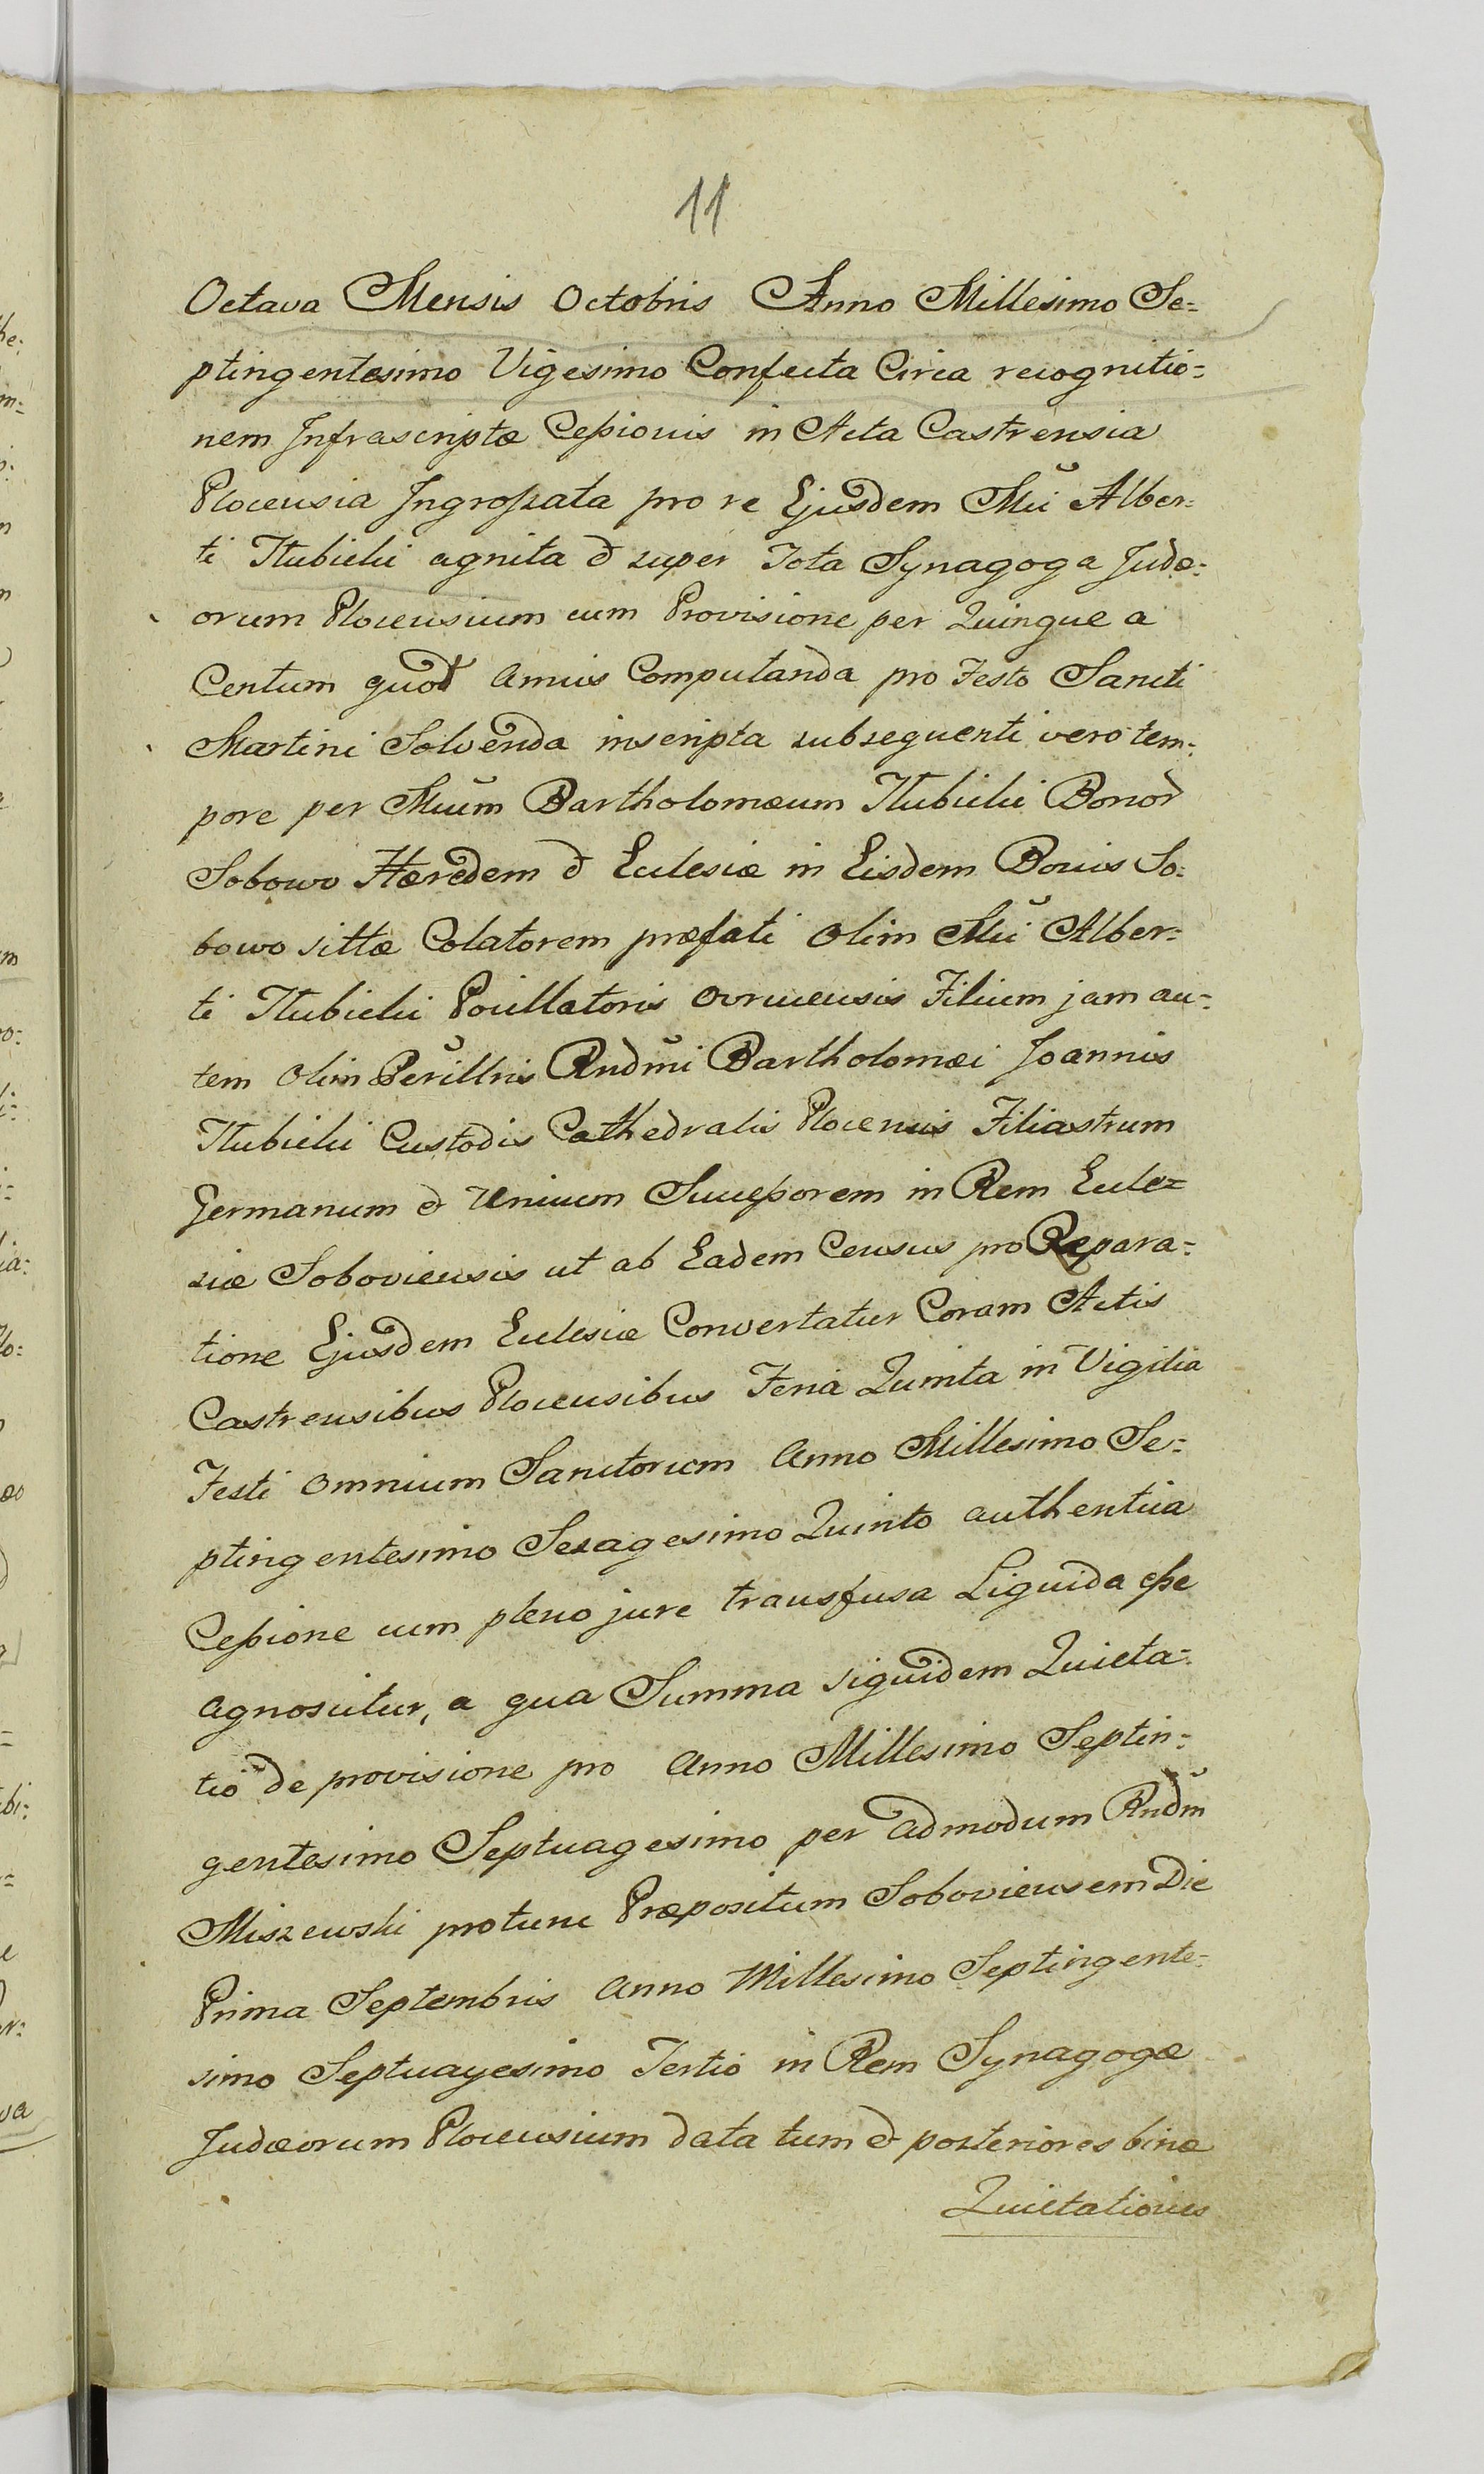 11
Octava Mensis Octobris Anno Millesimo Se=
ptingentesimo Vigesimo Confecta Circa recognitio=
nem Infrascriptæ Cessionis in Acta Castrensia
Plocensia Ingrossata pro re Ejusdem Mũi Alber=
ti Kubicki agnita & super Tota Synagoga Judæ=
orum Plocensium cum Provisione per Quinque a
Centum quod annis Computanda pro Festo Sancti
Martini Solvenda inscripta subsequenti vero tem=
pore per Mũum Bartholomæum Kubicki Bonor
Sobowo Hæredem & Eclesiæ in Eisdem Bonis So=
bowo sittæ Colatorem præfati olim Mũi Alber=
ti Kubicki Pocillatoris Ovrucensis Filium jam au=
tem olim Perillris Rndmi Bartholomæi Joannis
Kubicki Custodis Cathedralis Plocensis Filiastrum
Germanum & Unicum Sucessorem in Rem Ecle=
siæ Soboviensis ut ab Eadem Census pro Repara=
tione Ejusdem Eclesiæ Convertatur Coram Actis
Castrensibus Plocensibus Feria Quinta in Vigilia
Festi Omnium Sanctorum Anno Millesimo Se=
ptingentesimo Sexagesimo Quinto authentica
Cessione cum pleno jure transfusa Liquida esse
agnoscitur, a qua Summa siquidem Quieta=
tio de provisione pro Anno Millesimo Septin=
gentesimo Septuagesimo per admodum Rndm
Miszewski protunc Præpositum Soboviensem Die
Prima Septembris Anno Millesimo Septingente=
simo Septuagesimo Tertio in Rem Synagogæ
Judæorum Plocensium data tum & posteriores binæ
Quietationes